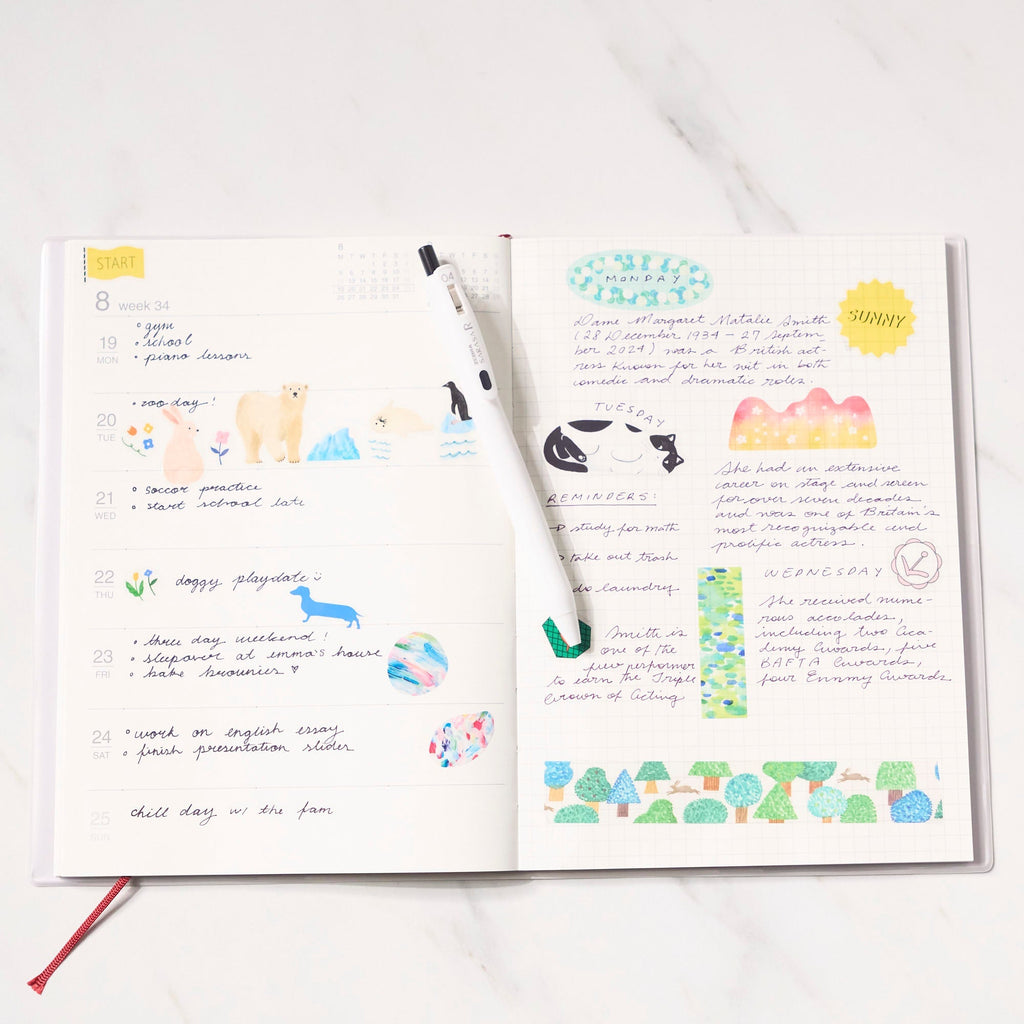 START
8 week 34
8
M T W T F S
19
MON
gym
school
piano lessons
20
TUE
zoo day!
21
WED
soccor practice
start school late
22
THU
doggy playdate
23
FRI
three day weekend!
sleepover at emma's house
bake brownies
24
SAT
work on english essay
finish presentation slides
25
SUN
chill day w/ the fam
04
ZEBRA
SARASA R
MONDAY
SUNNY
Dame Margaret Natalie Smith
(28 December 1934 - 27 Septem-
ber 2024) was a British act-
ress known for her wit in both
comedic and dramatic roles.
TUESDAY
REMINDERS:
study for math
take out trash
do laundry
She had an extensive
career on stage and screen
for over seven decades
and was one of Britain's
most recognizable and
prolific actress.
WEDNESDAY
She received nume-
rous accolades,
including two Aca-
demy Awards, five
BAFTA Awards,
four Emmy Awards
Smith is
one of the
few performer
to earn the Triple
Crown of Acting